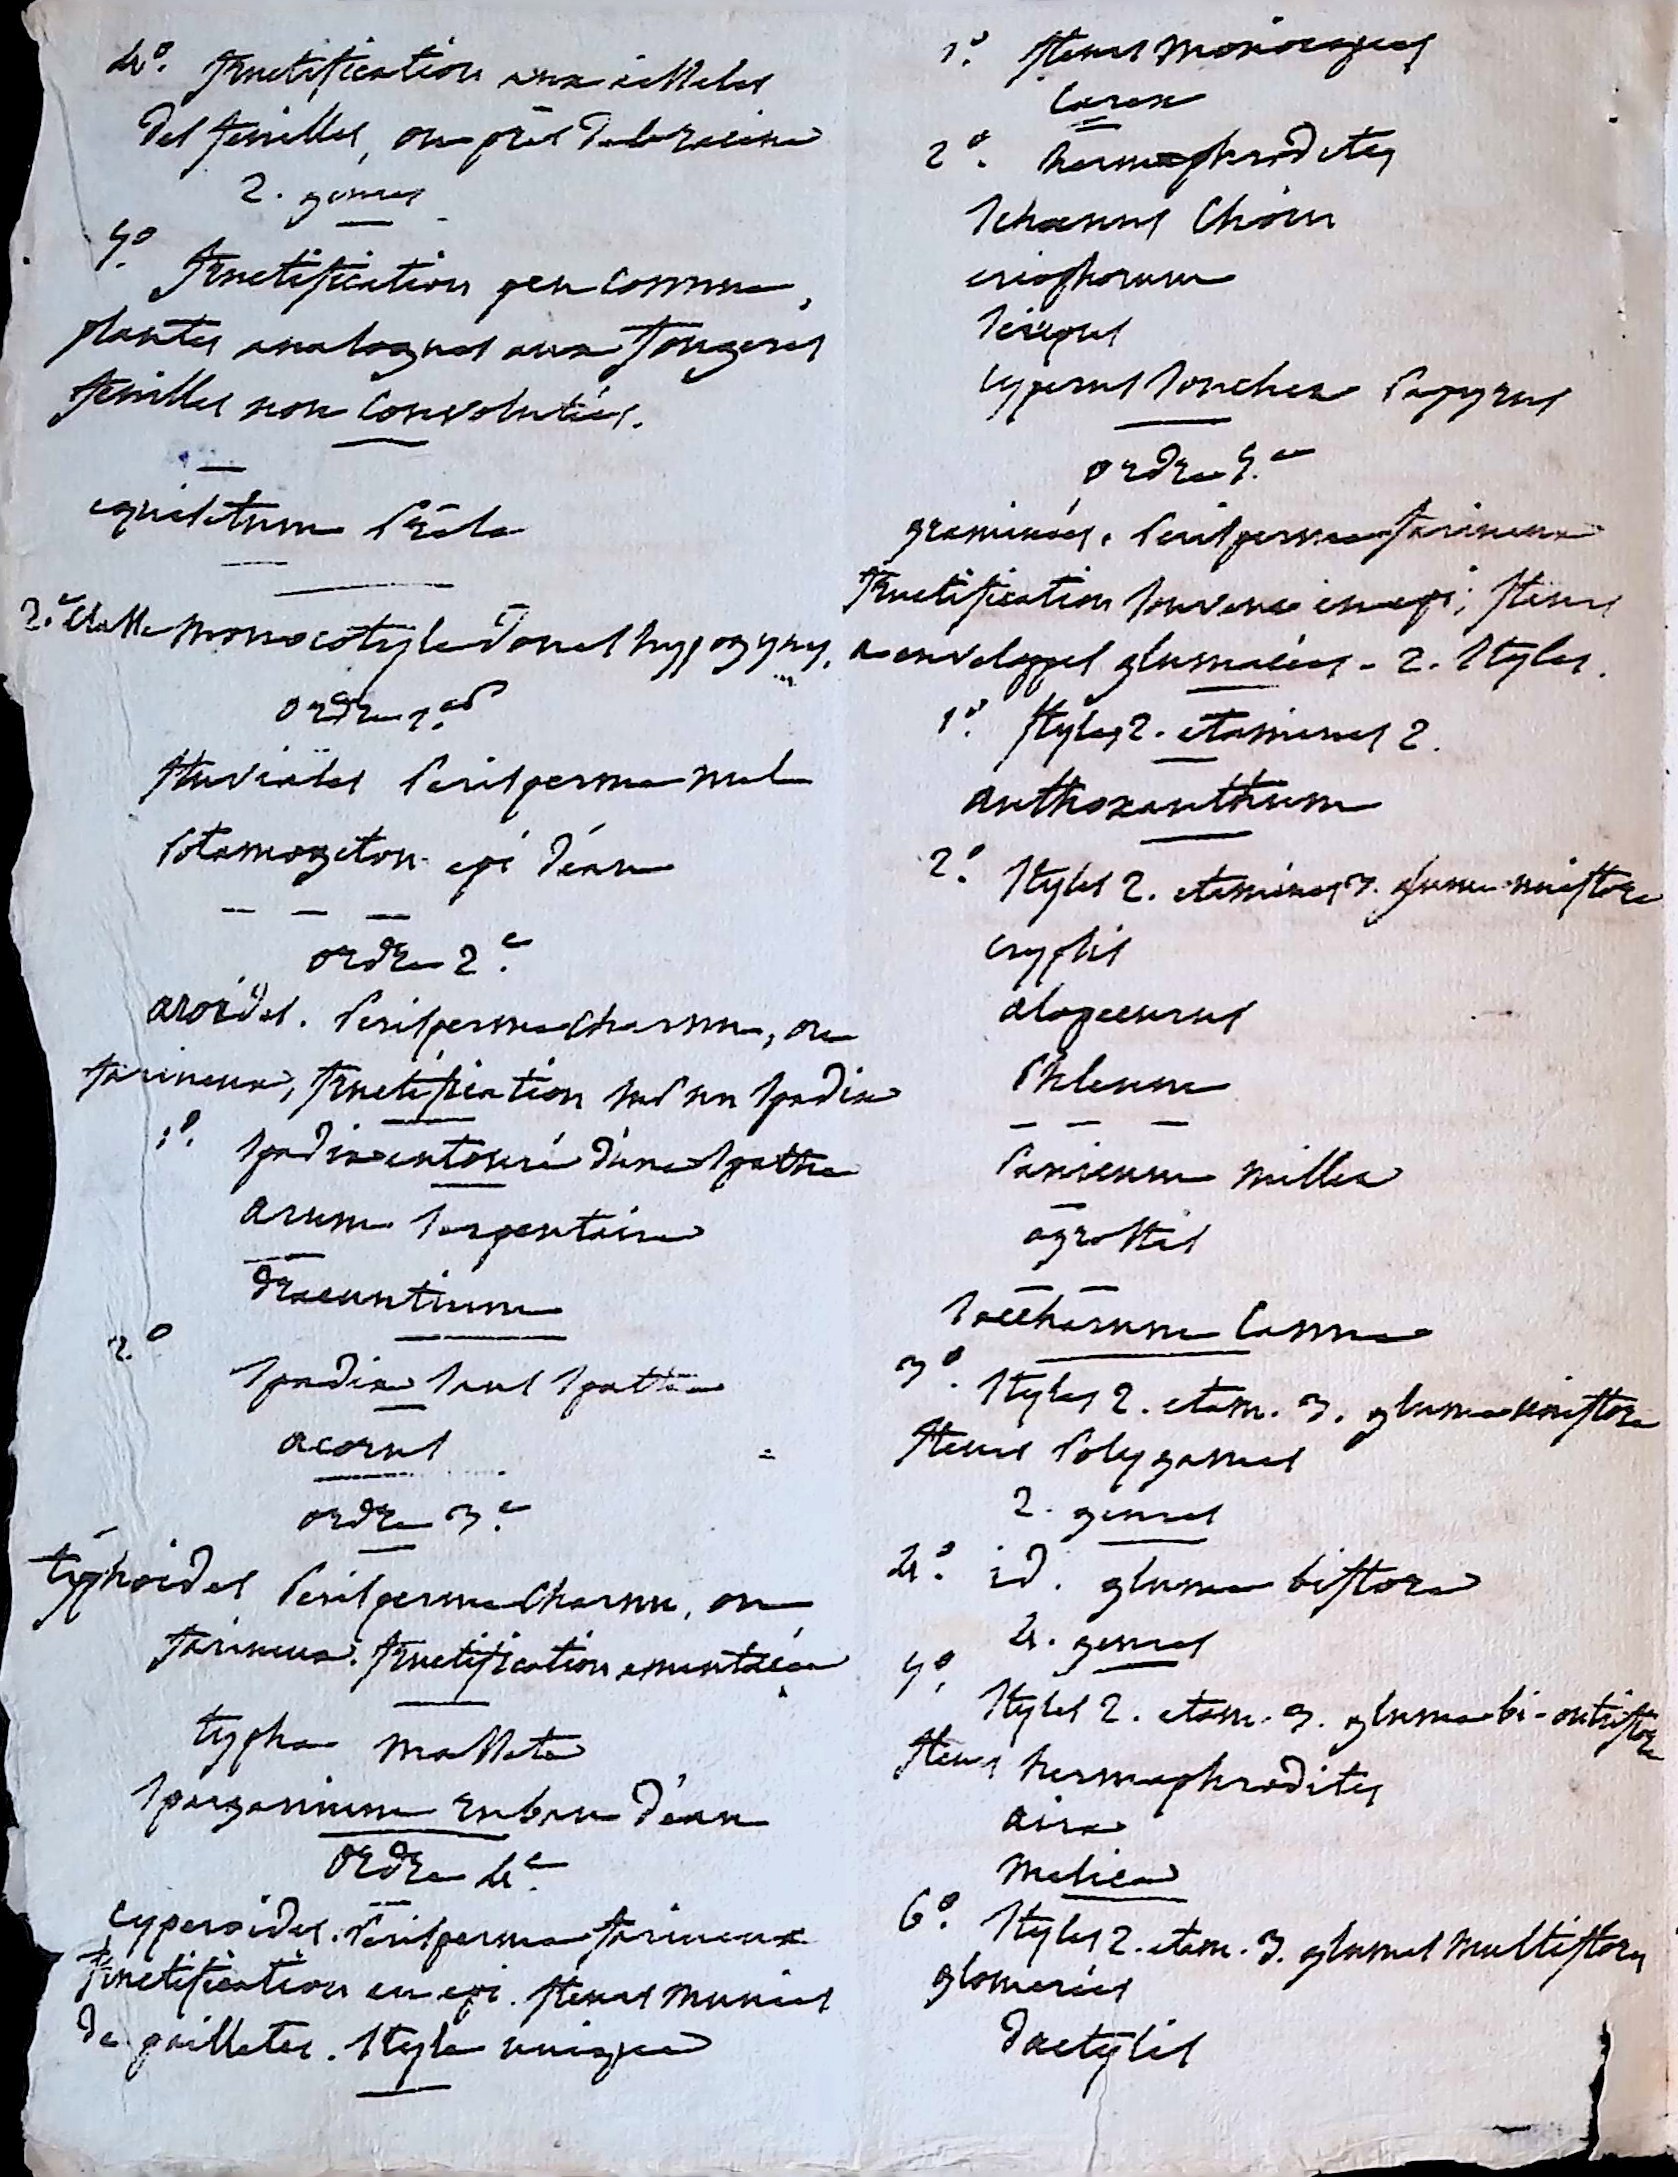 4.° fructification aux aisselles
des feuilles, ou près de la racine
2. genres
5.° fructification peu connue,
plantes analogues aux fougeres
feuilles non convolutées.
equisetum Prêle
2.e Classe monocotyledones hypogynes.
ordre 1.er
fluviales Perisperme nul
Potamogeton epi d'eau
ordre 2.e
aroides. Perisperme charnu, ou
farineux, fructification sur un spadix
1.° spadix entouré d'une spathe
arum serpentaire
dracuntium
2.° spadix sans spathe
acorus
ordre 3.e
typhoides Perisperme charnu, ou
farineux. fructification amentacée
typha massete
sparganium ruban d'eau
ordre 4.e
cyperoides. Perisperme farineux
fructification en epi. fleurs munies
de paillettes. style unique
1.° fleurs monoiques
Carex
2.° hermaphrodites
schoenus Choin
eriophorum
scirpus
cyperus souchet Papyrus
ordre 5.e
graminées. Perisperme farineux
fructification souvent en epi; fleurs
a enveloppes glumacées - 2. styles.
1.° styles 2. etamines 2.
anthoxanthum
2.° styles 2. etamines 3. glume uniflore
crypsis
alopecurus
Phleum
Panicum millet
agrostis
saccharum Canne
3.° styles 2. etam. 3. glume uniflore
fleurs Polygames
2. genres
4.° id. glume biflore
4. genres
5.° styles 2. etam. 3. glume bi-ou triflore
fleurs hermaphrodites
aira
melica
6.° styles 2. etam. 3. glumes multiflores
glomerées
dactylis